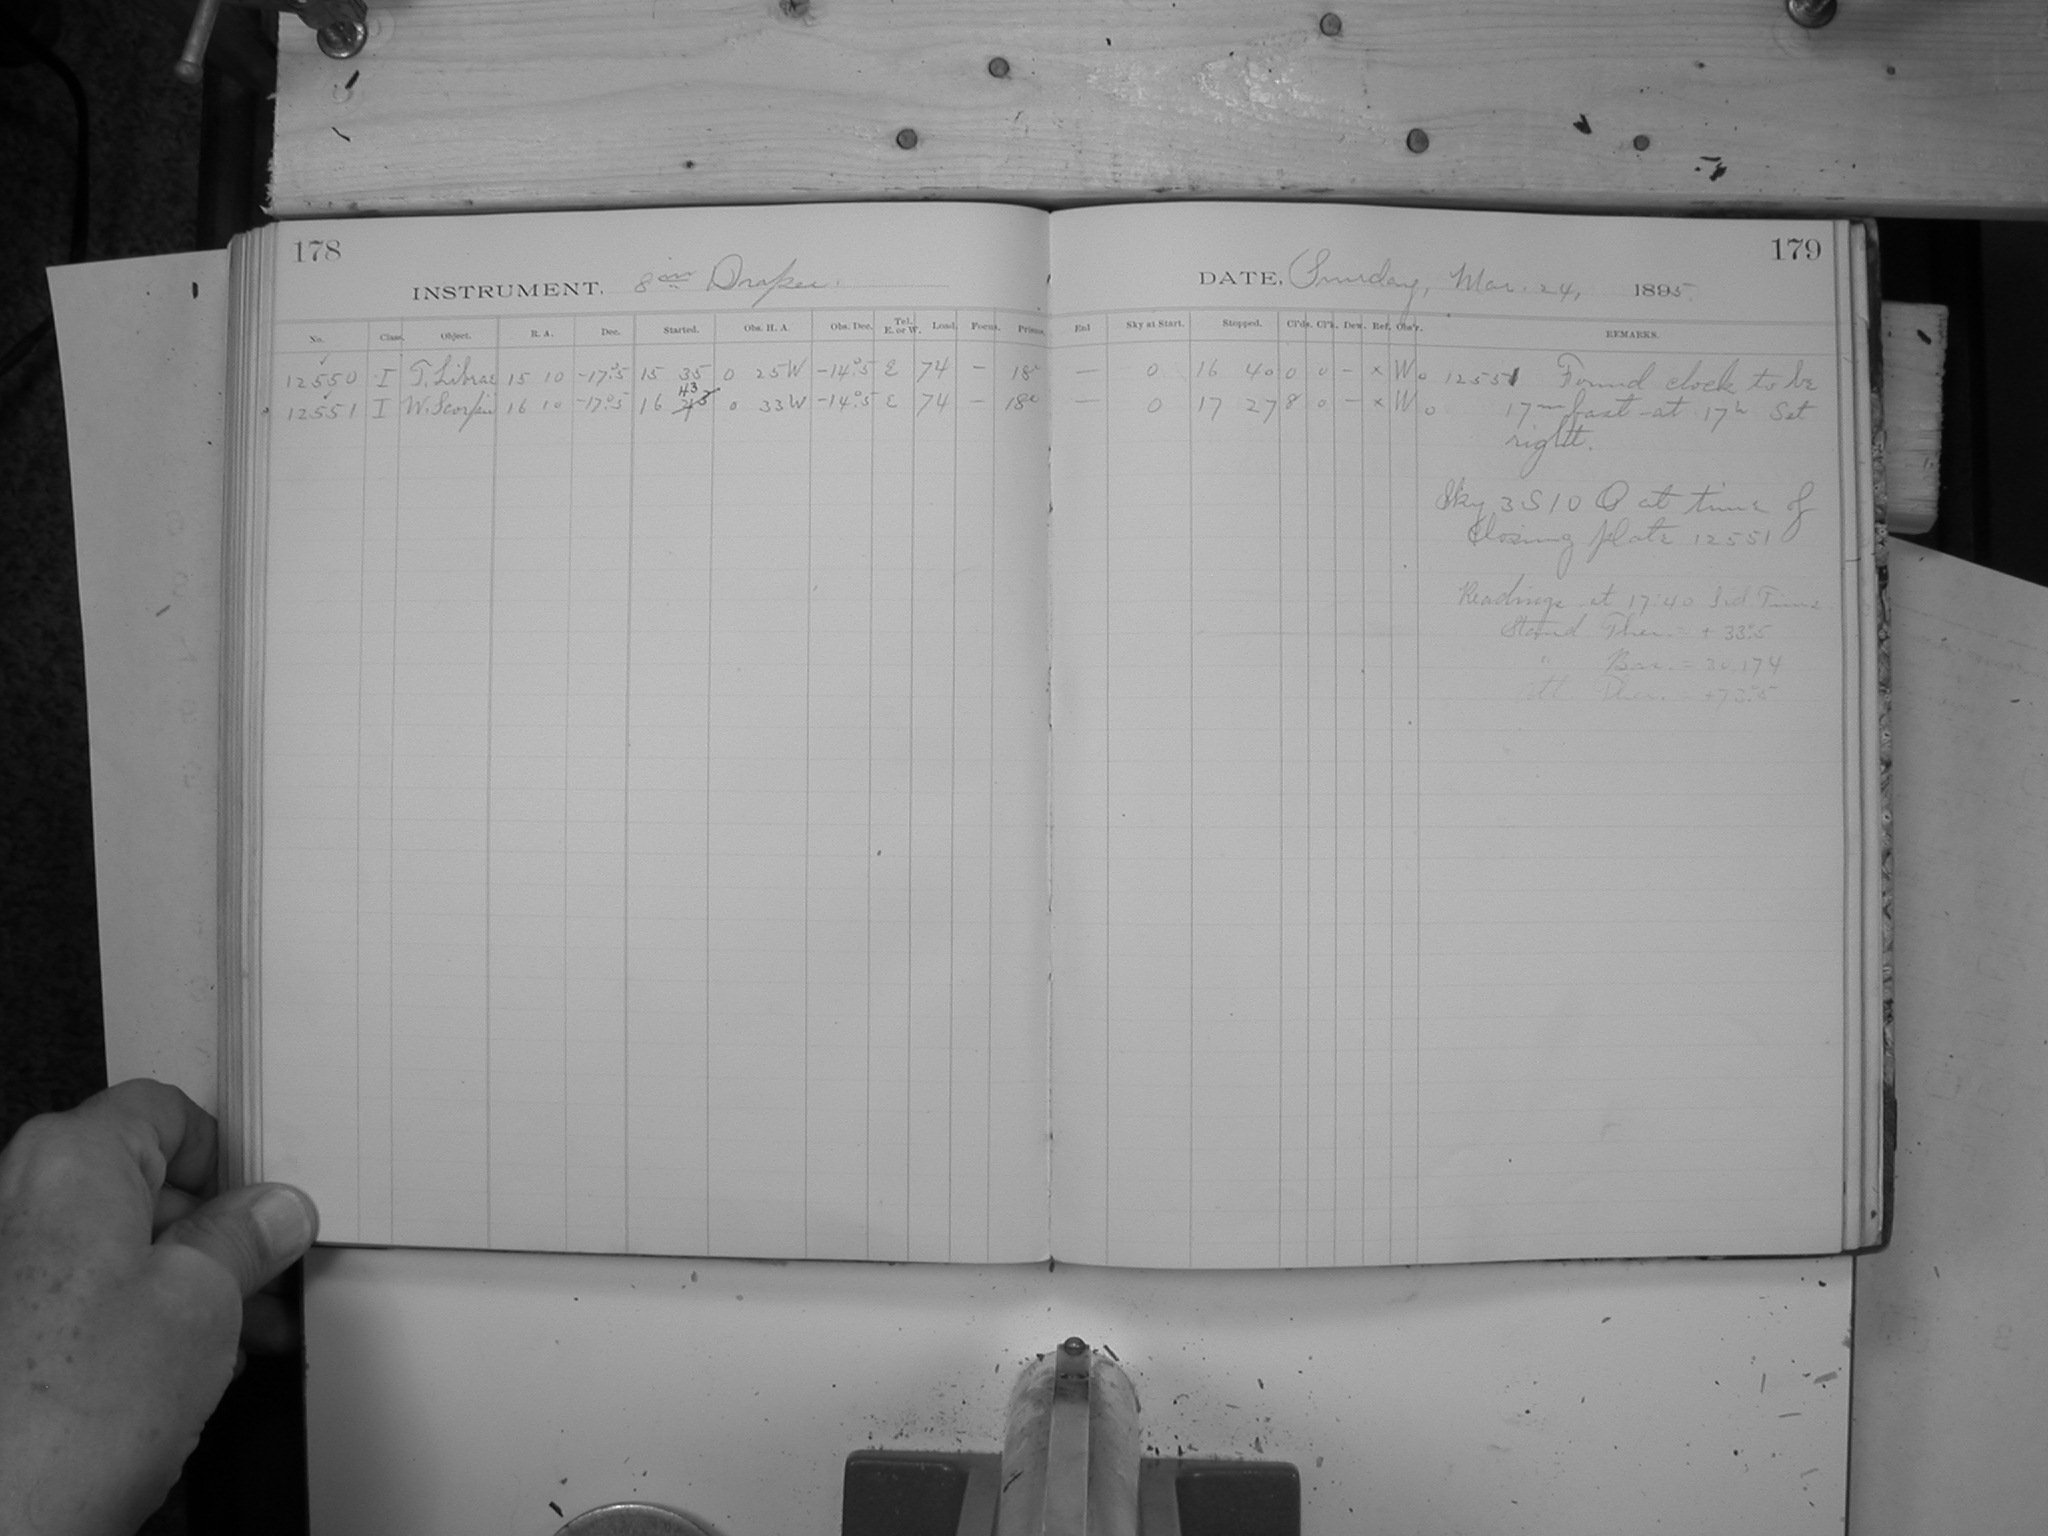 178
INSTRUMENT. 8 in Draper.
No. Class. Object. R. A. Dec. Started. Obs. H. A. Obs. Dec. Tel. E. or W. Load. Focus. Prisms.
12550 I T. Librae 15 10 -17°.5 15 35 0 25W -14°.5 E 74 – 18°
43
12551 I W. Scorpii 16 10 -17°.5 16 0 33W -14°.5 E 74 – 18°
179
DATE. Sunday, Mar. 24, 1895.
Enl Sky at Start. Stopped. Cl'ds. Cl'k. Dew. Ref. Obs'r. REMARKS.
— 0 16 40 0 0 – x W 0 12551 Found clock to be
— 0 17 27 8 0 – x W 0 17m fast at 17h Set
right.
Sky 3 S 10 at time of
Closing plate 12551
Readings at 17:40 Sid. Time
Stand Ther. = + 33°.5
" Bar. = 30.174
Att. Ther. +73°.5